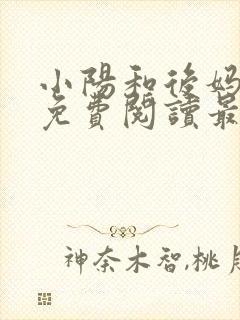 小陽和後媽
免費閱讀最
神奈木智,桃月